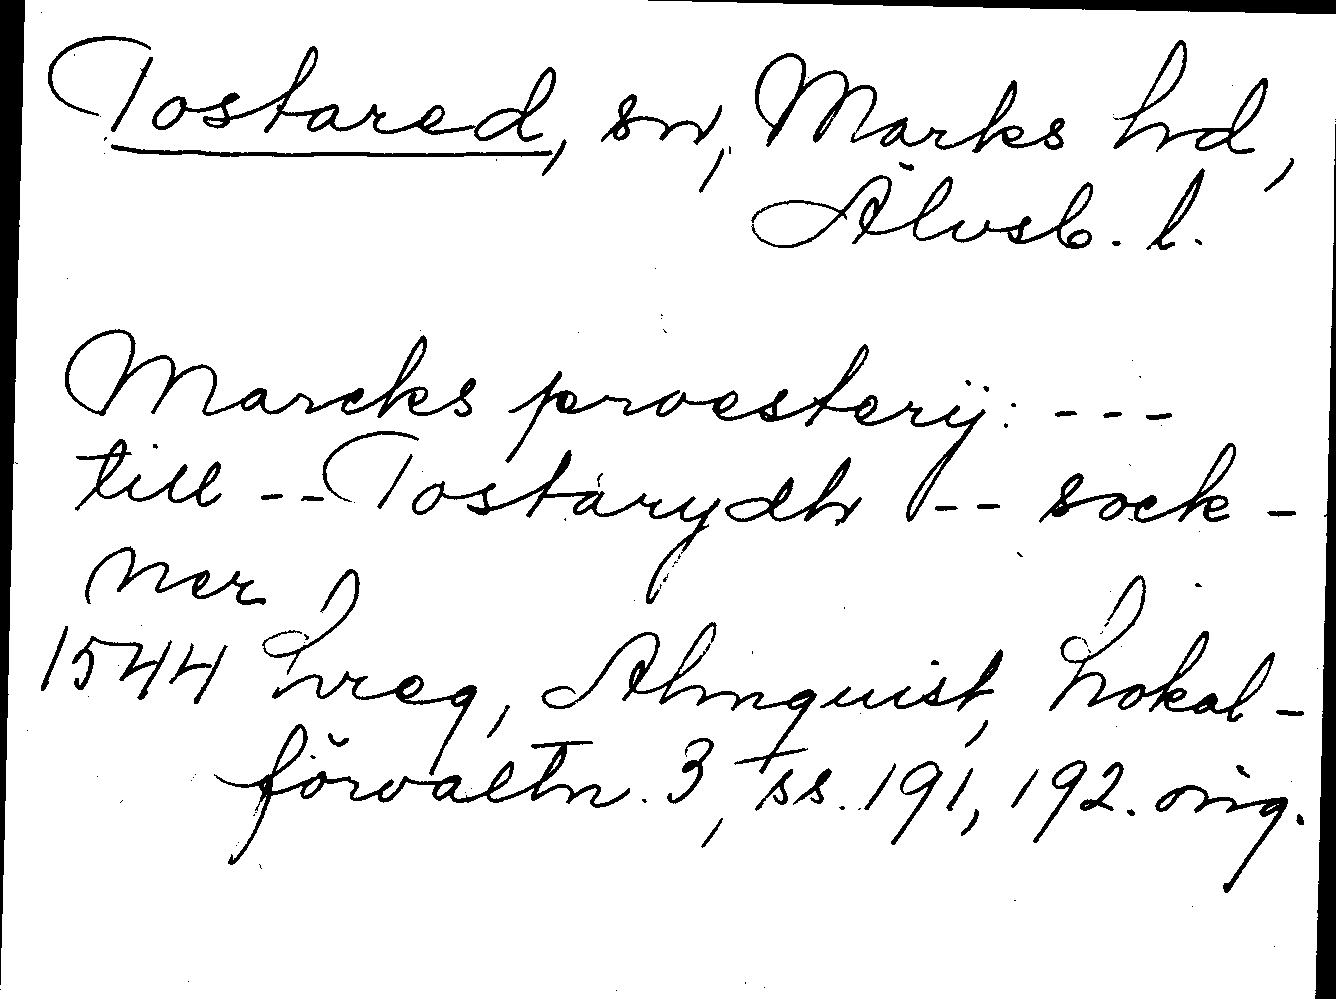 Tostared, sn, Marks hd,
Älvsb. l.
Marcks proesterij: ---
till -- Tostarydh -- sock-
ner
1544 Lreg, Almquist, Lokal-
förvaltn. 3, ss. 191, 192. orig.